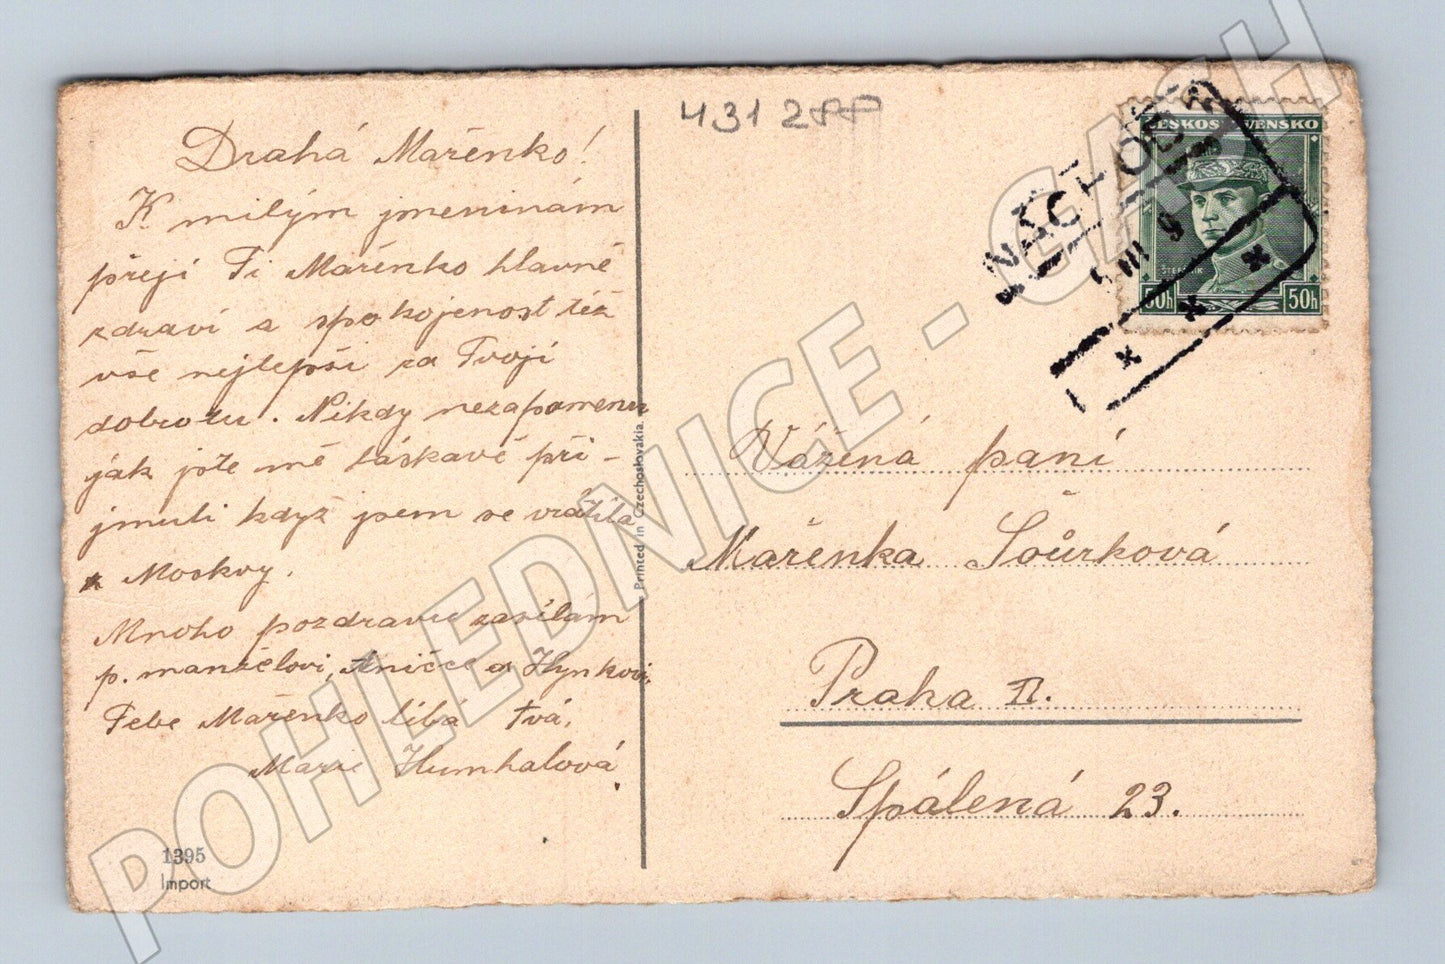 4312PP
Drahá Mařenko!
K milým jmeninám
přeji Ti Mařenko hlavně
zdraví a spokojenost též
vše nejlepší za Tvoji
dobrotu. Nikdy nezapomenu
jak jste mě láskavě při-
jmuli když jsem se vrátila
z Moskvy.
Mnoho pozdravu zasílám
p. manželovi, Aničce a Hynkovi.
Tebe Mařenko líbá tvá.
Marie Humhalová
1395
Import
Printed in Czechoslovakia.
ČESKOSLOVENSKO
ŠTEFÁNIK
50h 50h
Vážená paní
Mařenka Součková
Praha II.
Spálená 23.
POHLEDNICE - CASH